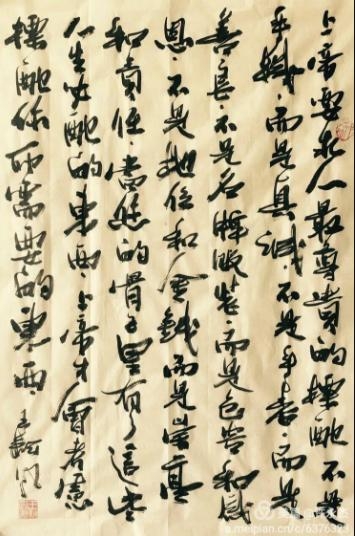 上帝要求人最尊贵的搭配不是
手镯·而是真诚·不是手表·而是
善良·不是名牌服装·而是包容和感
恩·不是地位和金钱而是崇高
和责任·当您的骨子里有了这些
人生必配的东西·上帝才会考虑
搭配你所需要的东西
a.meipian.cn/c/6376323